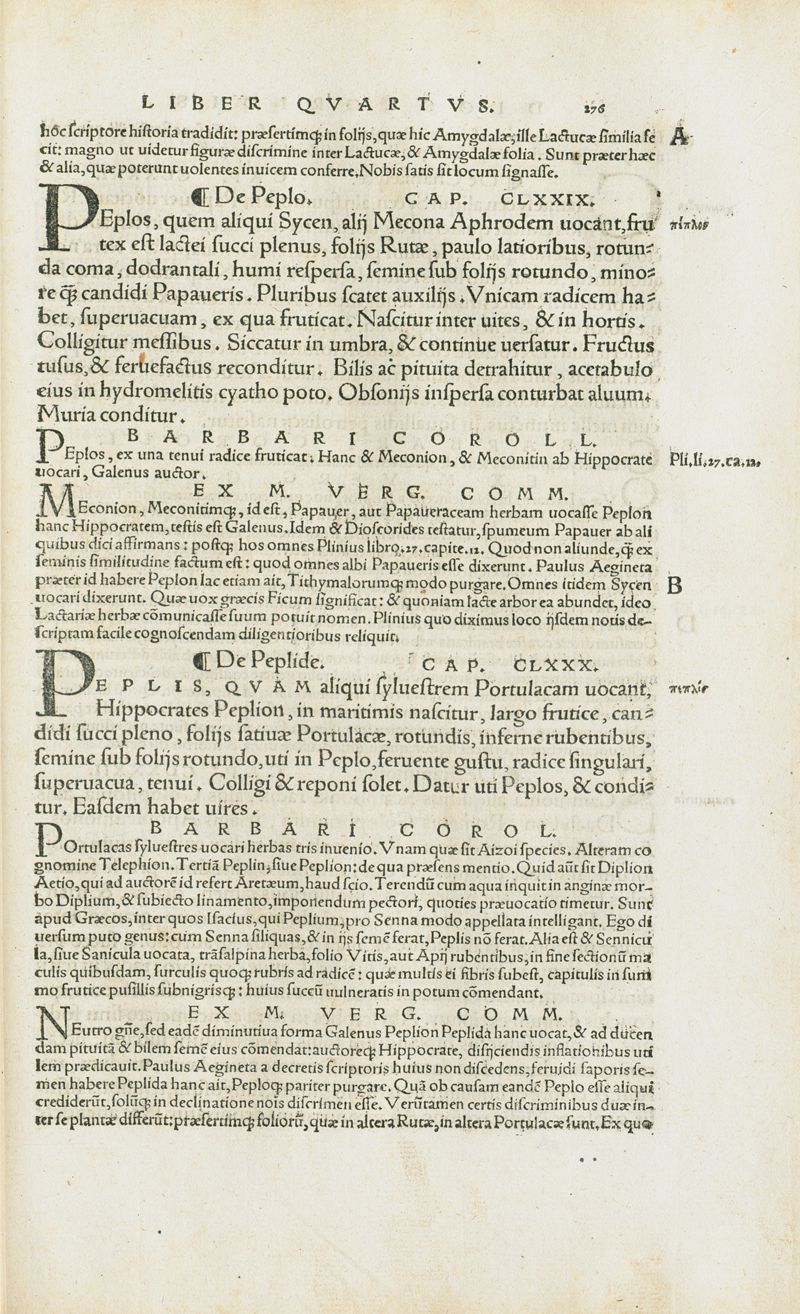 LIBER QVARTVS. 276
hoc ſcriptore hiſtoria tradidit: præſertimq; in folijs, quæ hic Amygdalæ, ille Lactucæ ſimilia fe A
cit: magno ut uidetur figuræ diſcrimine inter Lactucæ, & Amygdalæ folia. Sunt præter hæc
& alia, quæ poterunt uolentes inuicem conferre. Nobis ſatis ſit locum ſignaſſe.
¶ De Peplo. CAP. CLXXIX.
PEplos, quem aliqui Sycen, alij Mecona Aphrodem uocant, fru πέπλος
tex eſt lactei ſucci plenus, folijs Rutæ, paulo latioribus, rotun-
da coma, dodrantali, humi reſperſa, ſemine ſub folijs rotundo, mino-
re q̃ candidi Papaueris. Pluribus ſcatet auxilijs. Vnicam radicem ha-
bet, ſuperuacuam, ex qua fruticat. Naſcitur inter uites, & in hortis.
Colligitur meſſibus. Siccatur in umbra, & continue uerſatur. Fructus
tuſus, & feruefactus reconditur. Bilis ac pituita detrahitur, acetabulo
eius in hydromelitis cyatho poto. Obſonijs inſperſa conturbat aluum.
Muria conditur.
BARBARI COROLL.
PEplos, ex una tenui radice fruticat. Hanc & Meconion, & Meconitin ab Hippocrate Pli. li. 27. ca. 12.
uocari, Galenus auctor.
EX M. VERG. COMM.
MEconion, Meconitimq;, id eſt, Papauer, aut Papaueraceam herbam uocaſſe Peplon
hanc Hippocratem, teſtis eſt Galenus. Idem & Dioſcorides teſtatur, ſpumeum Papauer ab ali
quibus dici affirmans: poſtq; hos omnes Plinius libro. 27. capite. 12. Quod non aliunde, q̃ ex
ſeminis ſimilitudine factum eſt: quod omnes albi Papaueris eſſe dixerunt. Paulus Aegineta
præter id habere Peplon lac etiam ait, Tithymalorumq; modo purgare. Omnes itidem Sycen B
uocari dixerunt. Quæ uox græcis Ficum ſignificat: & quoniam lacte arbor ea abundet, ideo
Lactariæ herbæ cōmunicaſſe ſuum potuit nomen. Plinius quo diximus loco ijſdem notis de-
ſcriptam facile cognoſcendam diligentioribus reliquit.
¶ De Peplide. CAP. CLXXX.
PEPLIS, QVAM aliqui ſylueſtrem Portulacam uocant, πεπλίς
Hippocrates Peplion, in maritimis naſcitur, largo frutice, can-
didi ſucci pleno, folijs ſatiuæ Portulacæ, rotundis, inferne rubentibus,
ſemine ſub folijs rotundo, uti in Peplo, feruente guſtu, radice ſingulari,
ſuperuacua, tenui. Colligi & reponi ſolet. Datur uti Peplos, & condi-
tur. Eaſdem habet uires.
BARBARI COROL.
POrtulacas ſylueſtres uocari herbas tris inuenio. Vnam quæ ſit Aizoi ſpecies. Alteram co
gnomine Telephion. Tertiā Peplin, ſiue Peplion: de qua præſens mentio. Quid aūt ſit Diplion
Aetio, qui ad auctorē id refert Aretæum, haud ſcio. Terendū cum aqua inquit in anginæ mor-
bo Diplium, & ſubiecto linamento, imponendum pectori, quoties præuocatio timetur. Sunt
apud Græcos, inter quos Iſacius, qui Peplium, pro Senna modo appellata intelligant. Ego di
uerſum puto genus: cum Senna ſiliquas, & in ijs ſemē ferat, Peplis nō ferat. Alia eſt & Sennicu
la, ſiue Sanicula uocata, trāſalpina herba, folio Vitis, aut Apij rubentibus, in fine ſectionū ma
culis quibuſdam, ſurculis quoq; rubris ad radicē: quæ multis ei fibris ſubeſt, capitulis in ſum
mo frutice puſillis ſubnigriſq;: huius ſuccū uulneratis in potum cōmendant.
EX M. VERG. COMM.
NEutro gñe, ſed eadē diminutiua forma Galenus Peplion Peplida hanc uocat, & ad ducen
dam pituitā & bilem ſemē eius cōmendat: auctoreq; Hippocrate, diſijciendis inflationibus uti
lem prædicauit. Paulus Aegineta a decretis ſcriptoris huius non diſcedens, feruidi ſaporis ſe-
men habere Peplida hanc ait, Peploq; pariter purgare. Quā ob cauſam eandē Peplo eſſe aliqui
crediderūt, ſolūq; in declinatione nois diſcrimen eſſe. Verūtamen certis diſcriminibus duæ in-
ter ſe plantæ differūt: præſertimq; foliorū, quæ in altera Rutæ, in altera Portulacæ ſunt. Ex quo